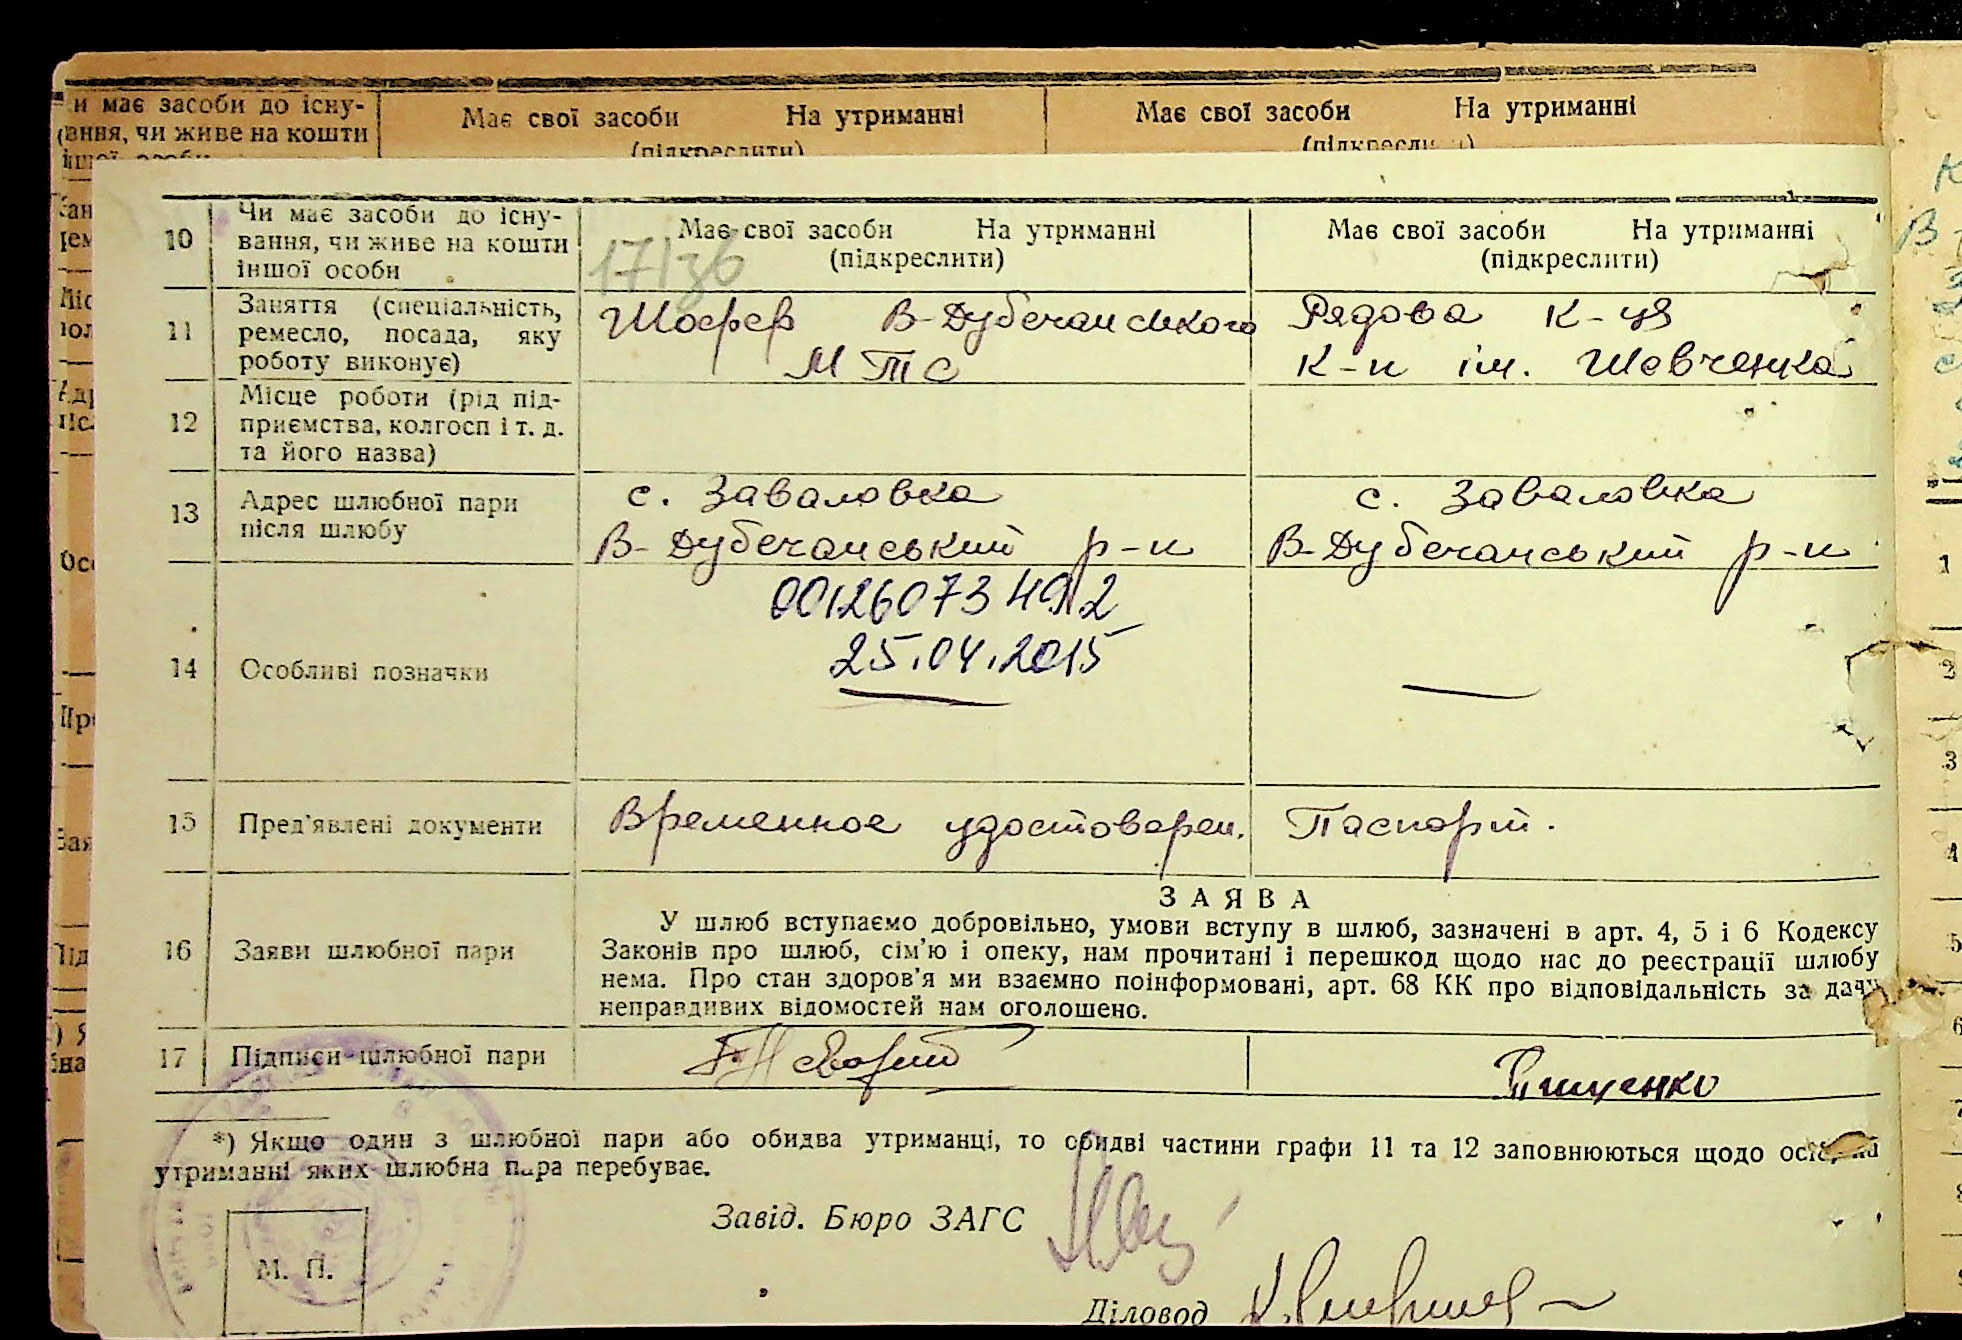 и має засоби до існу-
вання, чи живе на кошти
Має свої засоби На утриманні
(підкреслити)
Має свої засоби На утриманні
10
Чи має засоби до існу-
вання, чи живе на кошти
іншої особи
17/зб
Має свої засоби На утриманні
(підкреслити)
Має свої засоби На утриманні
(підкреслити)
11
Заняття (спеціальність,
ремесло, посада, яку
роботу виконує)
Шофер В-Дубечанського
МТС
Рядова к-ця
к-п ім. Шевченка
12
Місце роботи (рід під-
приємства, колгосп і т. д.
та його назва)
13
Адрес шлюбної пари
після шлюбу
с. Заваловка
В-Дубечанський р-н
с. Заваловка
В-Дубечанський р-н
14
Особливі позначки
00126073492
25.04.2015
15
Пред'явлені документи
Временное удостоверен.
Паспорт.
16
Заяви шлюбної пари
ЗАЯВА
У шлюб вступаємо добровільно, умови вступу в шлюб, зазначені в арт. 4, 5 і 6 Кодексу
Законів про шлюб, сім'ю і опеку, нам прочитані і перешкод щодо нас до реєстрації шлюбу
нема. Про стан здоров'я ми взаємно поінформовані, арт. 68 КК про відповідальність за дачу
неправдивих відомостей нам оголошено.
17
Підписи шлюбної пари
*) Якщо один з шлюбної пари або обидва утриманці, то обидві частини графи 11 та 12 заповнюються щодо
утриманні яких шлюбна пара перебуває.
Завід. Бюро ЗАГС
М. П.
Діловод